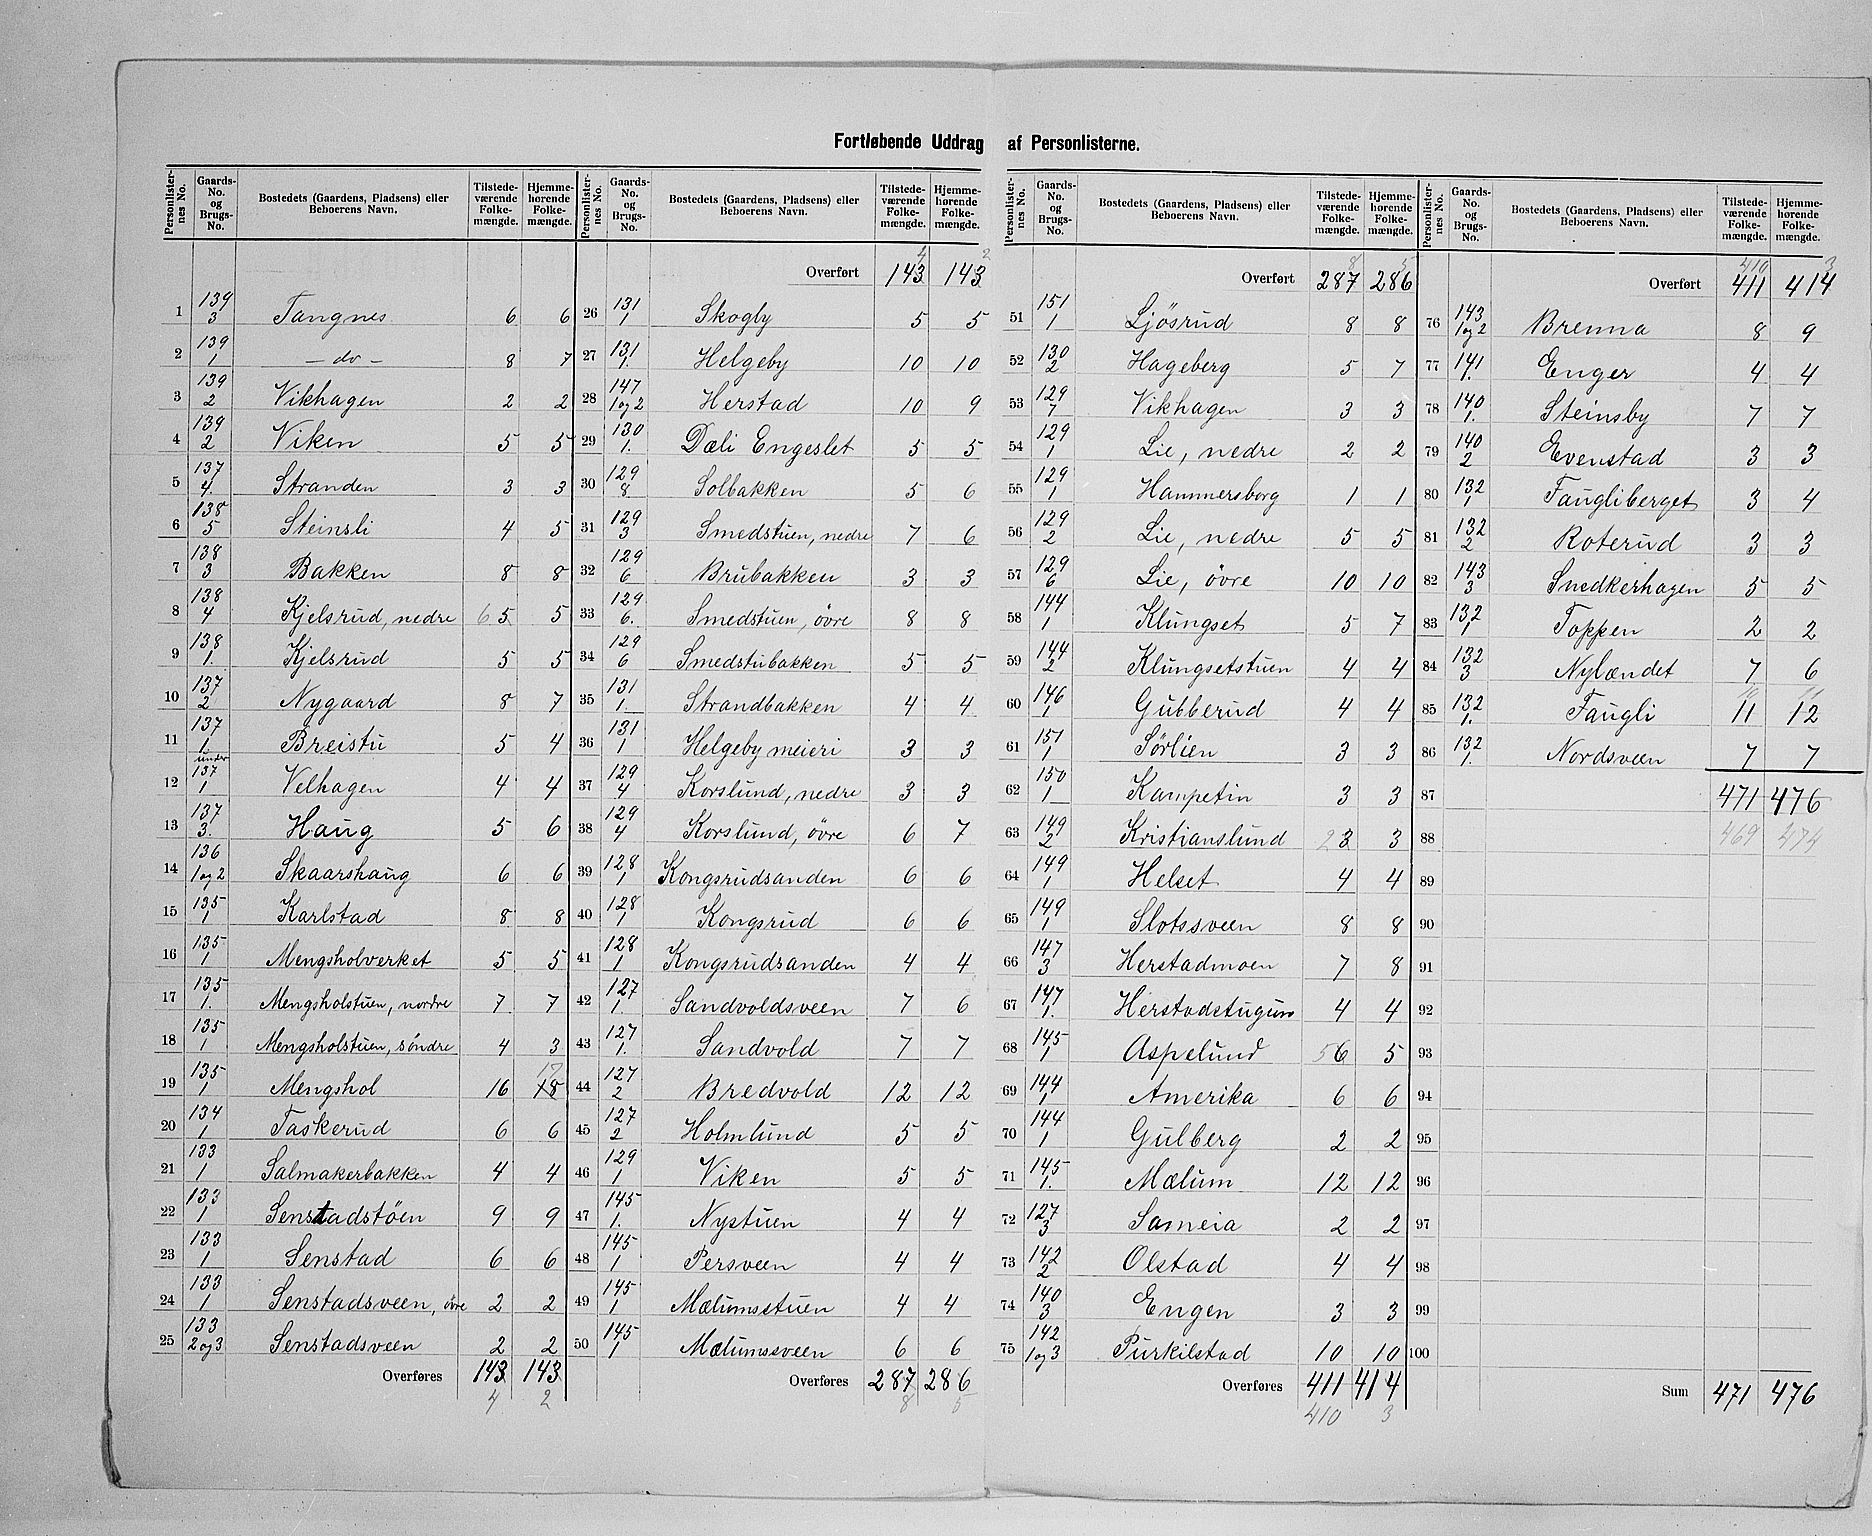 Fortløbende Uddrag af Personlisterne.
Personlister-nes No. | Gaards-No. og Brugs-No. | Bostedets (Gaardens, Pladsens) eller Beboerens Navn. | Tilstede-værende Folke-mængde. | Hjemme-hørende Folke-mængde.
1 139/3 Tangnes 6 6
2 139/1 — do — 8 7
3 139/2 Vikhagen 2 2
4 139/2 Viken 5 5
5 137/4 Stranden 3 3
6 138/5 Steinsli 4 5
7 138/3 Bakken 8 8
8 138/4 Kjelsrud, nedre 6 5 5
9 138/1. Kjelsrud 5 5
10 137/2 Nygaard 8 7
11 137/1 Breistu 5 4
12 under 137/1 Velhagen 4 4
13 137/3. Haug 5 6
14 136/1 og 2 Skaarshaug 6 6
15 135/1 Karlstad 8 8
16 135/1 Mengsholverket 5 5
17 135/1. Mengsholstuen, nordre 7 7
18 135/1 Mengsholstuen, søndre 4 3
19 135/1 Mengshol 16 17 18
20 134/1 Taskerud 6 6
21 133/1 Salmakerbakken 4 4
22 133/1 Senstadstöen 9 9
23 133/1 Senstad 6 6
24 133/1 Senstadsveen, övre 2 2
25 133/2 og 3 Senstadsveen 2 2
Overføres 143 143
4 2
Personlister-nes No. | Gaards-No. og Brugs-No. | Bostedets (Gaardens, Pladsens) eller Beboerens Navn. | Tilstede-værende Folke-mængde. | Hjemme-hørende Folke-mængde.
4 2
Overført 143 143
26 131/1 Skogly 5 5
27 131/1. Helgeby 10 10
28 147/1 og 2 Herstad 10 9
29 130/1. Dæli Engeslet 5 5
30 129/8 Solbakken 5 6
31 129/3 Smedstuen, nedre 7 6
32 129/6 Brubakken 3 3
33 129/6. Smedstuen, övre 8 8
34 129/6 Smedstubakken 5 5
35 131/1 Strandbakken 4 4
36 131/1 Helgeby meieri 3 3
37 129/4 Korslund, nedre 3 3
38 129/4 Korslund, övre 6 7
39 128/1 Kongsrudsanden 6 6
40 128/1 Kongsrud 6 6
41 128/1 Kongsrudsanden 4 4
42 127/1. Sandvoldsveen 7 6
43 127/1. Sandvold 7 7
44 127/2 Bredvold 12 12
45 127/2 Holmlund 5 5
46 129/1 Viken 5 5
47 145/1. Nystuen 4 4
48 145/1 Persveen 4 4
49 145/1 Mælumsstuen 4 4
50 145/1 Mælumssveen 6 6
Overføres 287 286
8 5
Personlister-nes No. | Gaards-No. og Brugs-No. | Bostedets (Gaardens, Pladsens) eller Beboerens Navn. | Tilstede-værende Folke-mængde. | Hjemme-hørende Folke-mængde.
8 5
Overført 287 286
51 151/1 Ljösrud 8 8
52 130/2 Hageberg 5 7
53 129/7 Vikhagen 3 3
54 129/1 Lie, nedre 2 2
55 129/1 Hammersborg 1 1
56 129/2 Lie, nedre 5 5
57 129/6 Lie, övre 10 10
58 144/1 Klungset 5 7
59 144/2 Klungsetstuen 4 4
60 146/1 Gubberud 4 4
61 151/1 Sørlien 3 3
62 150/1 Kampetin 3 3
63 149/2 Kristianslund 2 3 3
64 149/1 Helset 4 4
65 149/1 Slotssveen 8 8
66 147/3 Herstadmoen 7 8
67 147/1. Herstadstugun 4 4
68 145/1 Aspelund 5 6 5
69 144/1 Amerika 6 6
70 144/1 Gulberg 2 2
71 145/1. Mælum 12 12
72 127/3 Sameia 2 2
73 142/2 Olstad 4 4
74 140/3 Engen 3 3
75 142/1 og 3 Purkilstad 10 10
Overføres 411 414
410 3
Personlister-nes No. | Gaards-No. og Brugs-No. | Bostedets (Gaardens, Pladsens) eller Beboerens Navn. | Tilstede-værende Folke-mængde. | Hjemme-hørende Folke-mængde.
410 3
Overført 411 414
76 143/1 og 2 Brenna 8 9
77 141/1. Enger 4 4
78 140/1. Steinsby 7 7
79 140/2 Evenstad 3 3
80 132/1 Faugliberget 3 4
81 132/2 Roterud 3 3
82 143/3 Snedkerhagen 5 5
83 132/1 Toppen 2 2
84 132/3 Nylændet 7 6
10 11
85 132/1. Faugli 11 12
86 132/1. Nordsveen 7 7
87 471 476
88 469 474
89
90
91
92
93
94
95
96
97
98
99
100
Sum 471 476